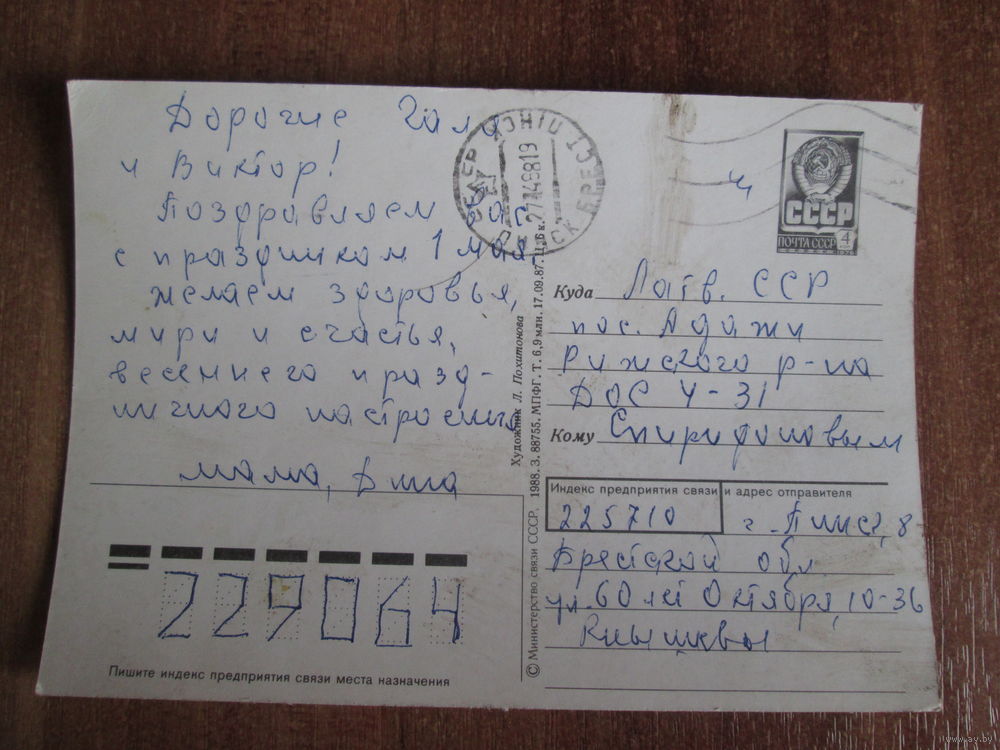 Дорогие Галя
и Виктор!
Поздравляем вас
с праздником 1 мая.
желаем здоровья,
мира и счастья,
весеннего празд-
ничного настроения
мама,
229064
Пишите индекс предприятия связи места назначения
© Министерство связи СССР. 1988. З. 88755. МПФГ. Т. 6,9 млн. 17.09.87. Ц. 6 к.
Художник Л. Похитонова
ПИНСК БРЕСТСК
СССР
ПОЧТА СССР 4
Куда Латв. ССР
пос. Адажи
Рижского р-на
ДОС 4-31
Кому Спиридоновым
Индекс предприятия связи и адрес отправителя
225710 г. Пинск, 8
Брестской обл
ул. 60 лет Октября, 10-36
www.ay.by